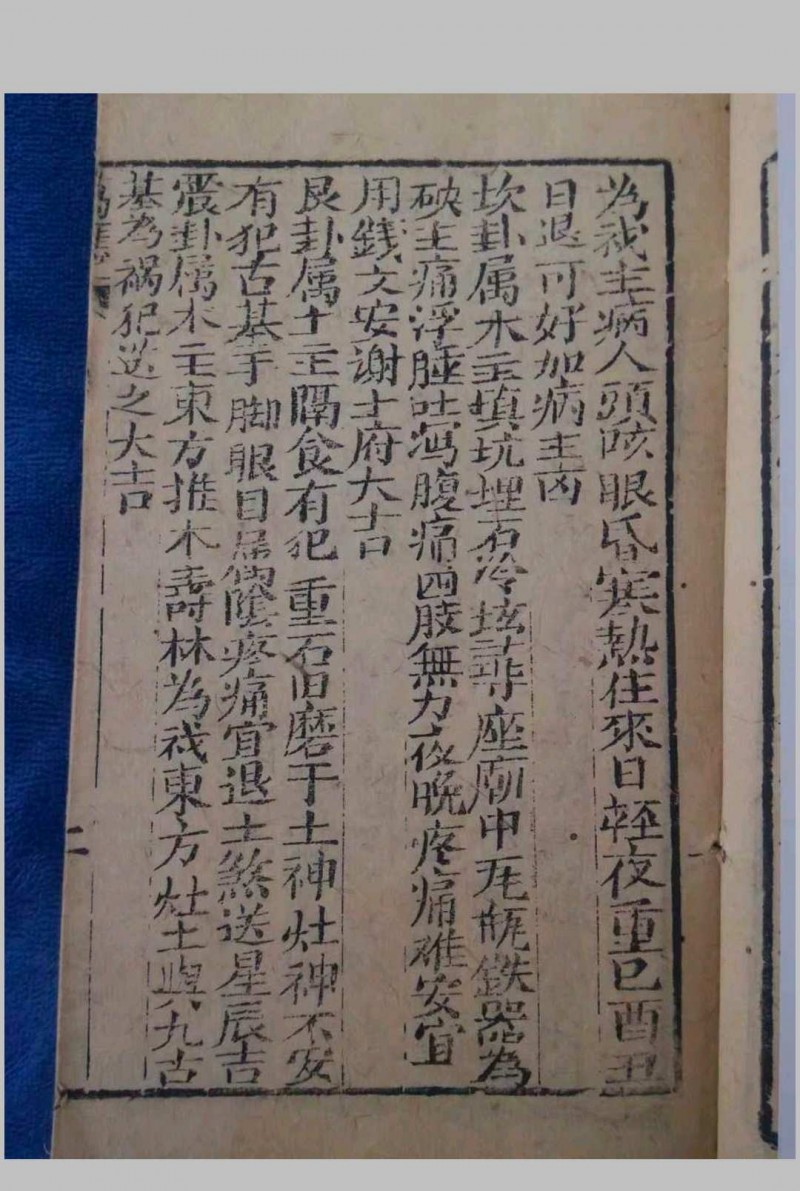 為戎主病人頭咳眼昏寒熱住來日輕夜重巳酉丑
日退可好加病主凶
坎卦属水主填坑埋石冷坛尋座廟中瓦瓶鉄器為
砍主痛浮腫吐瀉腹痛四肢無力夜晚疼痛难安宜
用錢文安谢土府大吉
艮卦属土主隔食有犯重石旧磨于土神灶神不安
有犯古基手脚眼目陰疼痛宜退土煞送星辰吉
震卦属木主東方推木壽林為戎東方灶土與九古
基為禍犯送之大吉
二